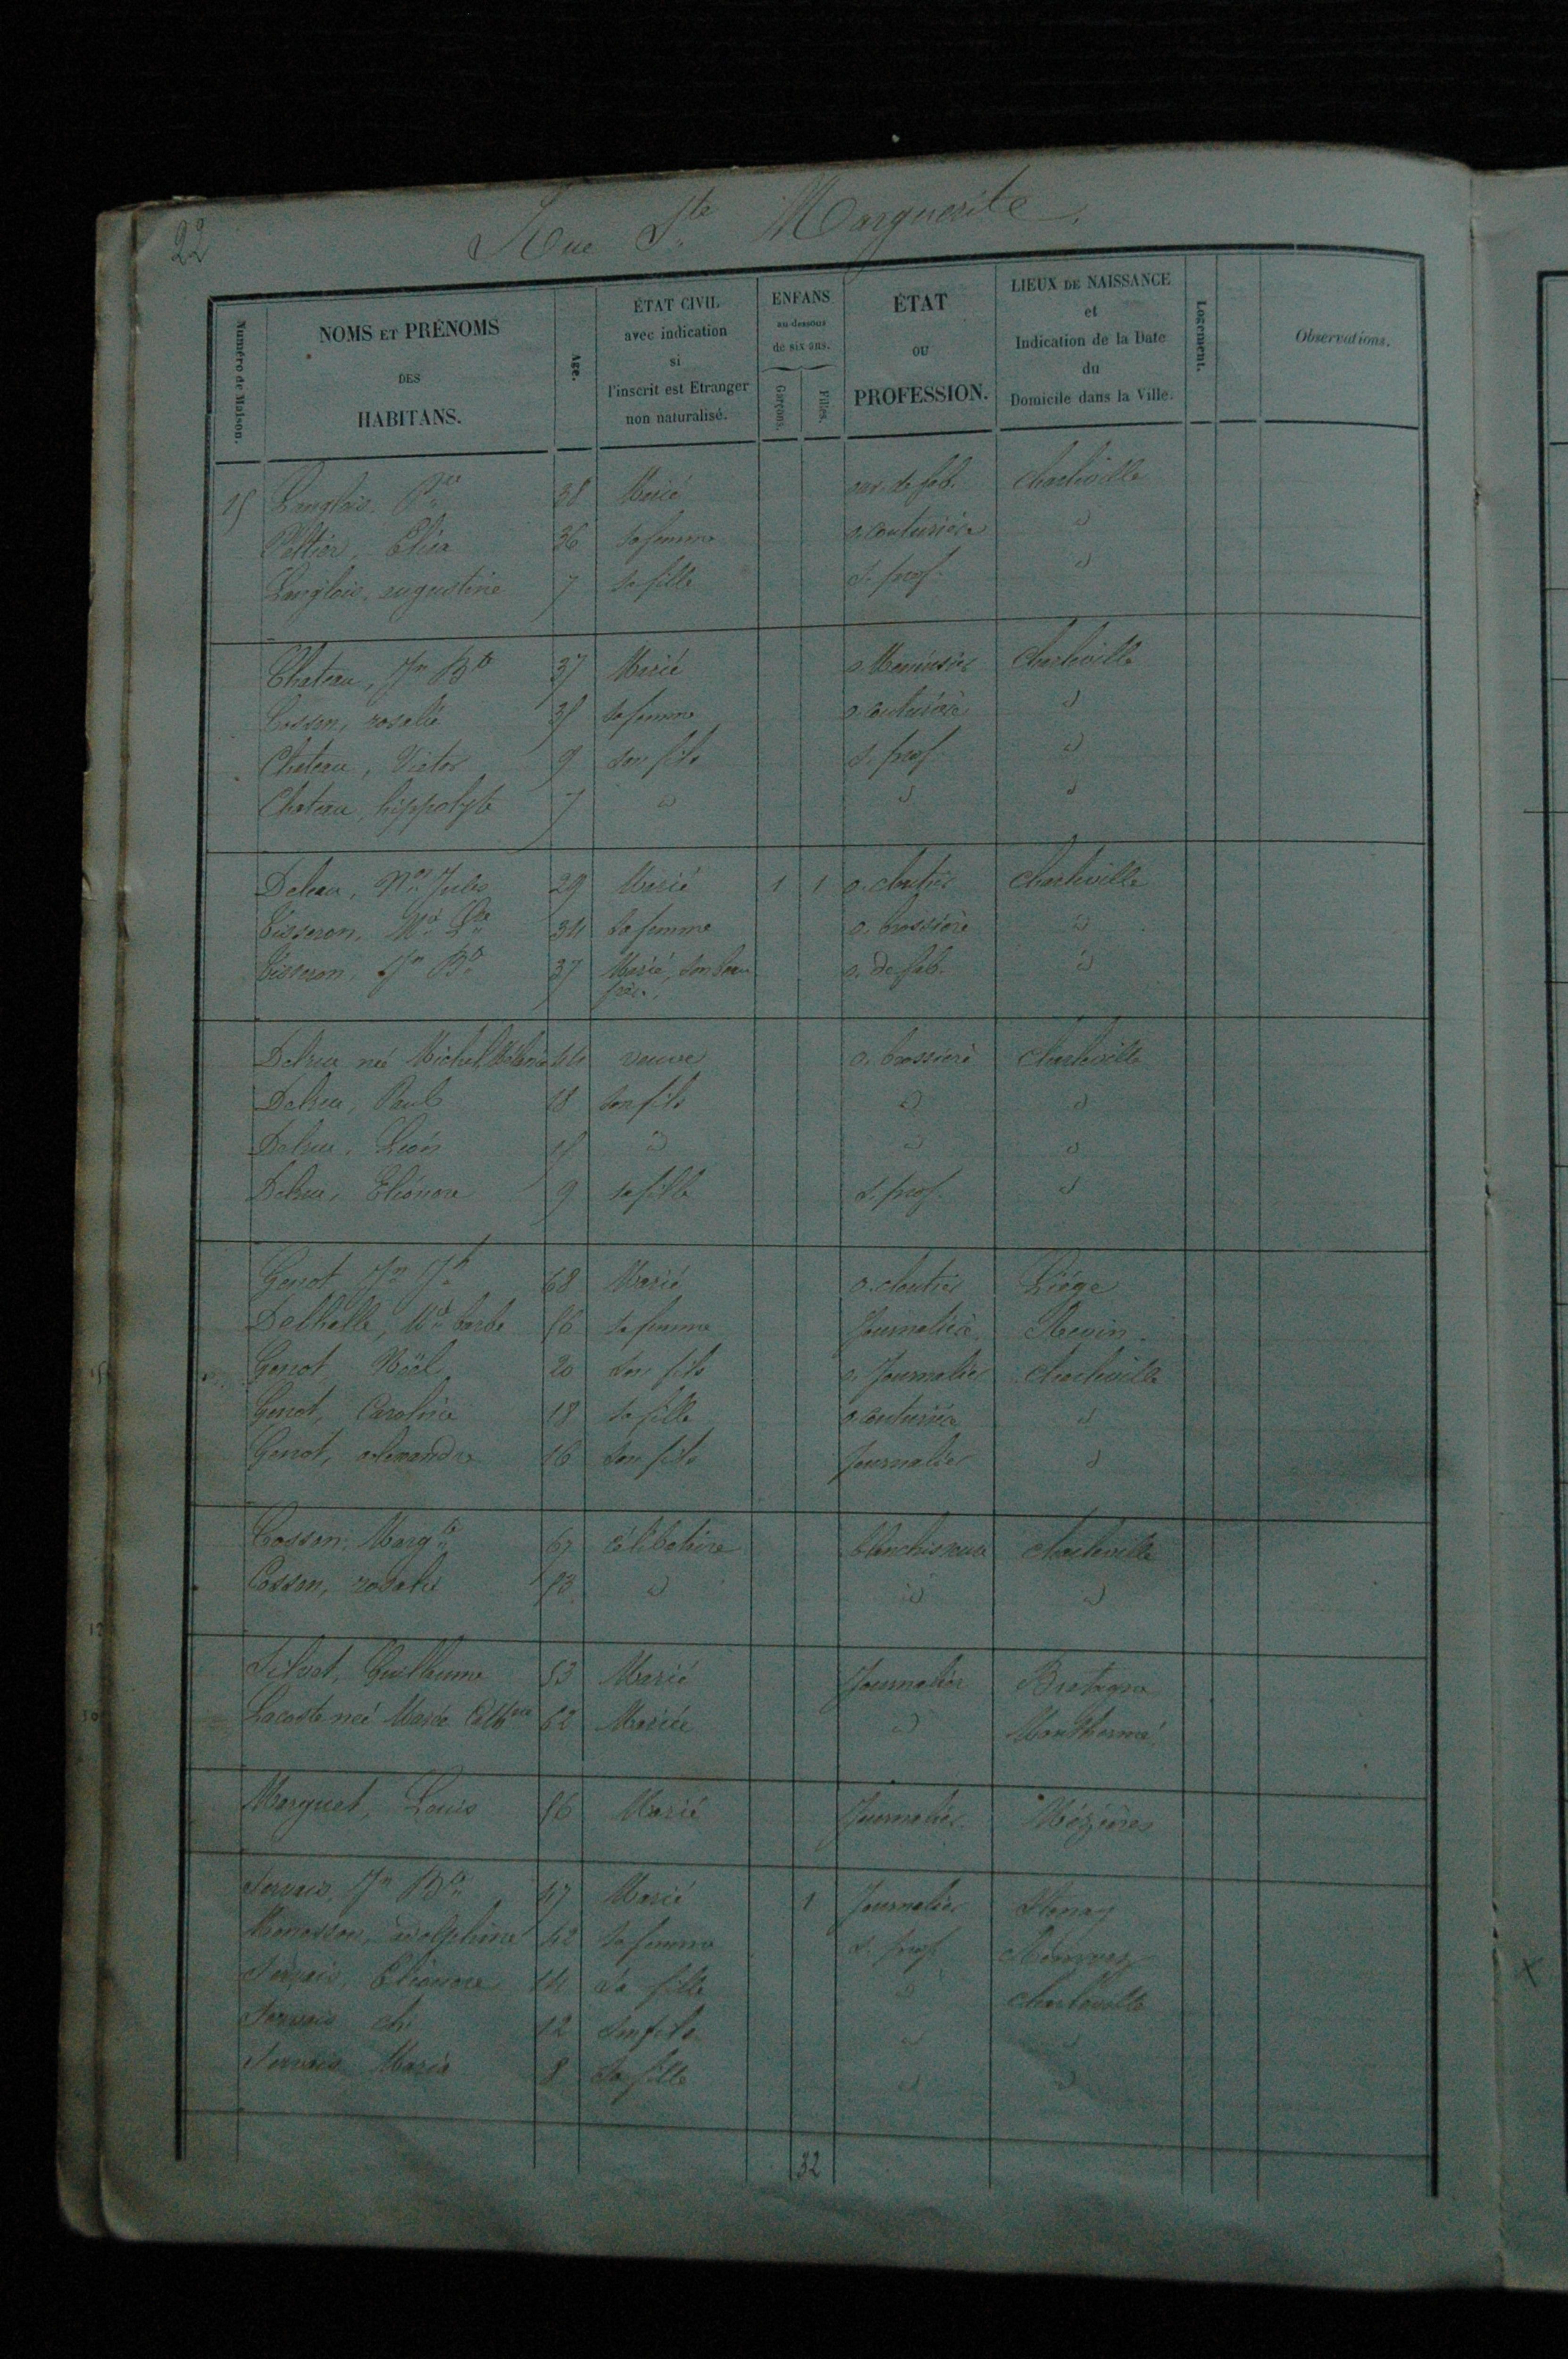 22
Rue Ste Marguerite
Numéro de Maison.
NOMS ET PRÉNOMS
DES
HABITANS.
Age.
ÉTAT CIVIL
avec indication
si
l'inscrit est Etranger
non naturalisé.
ENFANS
au-dessous
de six ans.
Garçons.
Filles.
ÉTAT
OU
PROFESSION.
LIEUX DE NAISSANCE
et
Indication de la Date
du
Domicile dans la Ville.
Logement.
Observations.
15 Langlois 38 Marié ouv. de fab. Charleville
Peltier, Elisa 36 sa femme o. couturière d
Langlois, augustine 7 sa fille s. prof. d
Chateau, Jn Bte 37 Marié o. Menuisier Charleville
Cosson, rosalie 35 sa femme o. couturière d
Chateau, Victor 9 son fils s. prof. d
Chateau, hippolyte 7 d d d
Deleau, Jules 29 Marié 1 1 o. cloutier Charleville
Tisseron, 34 sa femme o. brossière d
Tisseron, Jn Bte 37 Marié, son beau o. de fab. d
frère.
née Michel 44 veuve o. brossière Charleville
Paul 18 son fils d d
Léon 15 d d d
Eléonore 9 sa fille s. prof. d
Genot, Jn Jh 68 Marié o. cloutier Liége
Mie barbe 56 sa femme Journalière Revin
Genot, Noël 20 son fils o. Journalier Charleville
Genot, Caroline 18 sa fille o. couturière d
Genot, alexandre 16 son fils Journalier d
Cosson, Margte 67 célibataire blanchisseuse Charleville
Cosson, rosalie 53 d d d
Guillaume 53 Marié Journalier Bretagne
Lacoste née Marée Cathne 62 Mariée d Monthermé
Marguet, Louis 56 Marié Journalier Mézières
Servais, Jn Bte 47 Marié 1 Journalier Stenay
42 sa femme s. prof.
Servais, Eléonore 14 sa fille d Charleville
Servais 12 son fils d d
Servais Maria 8 sa fille d d
32